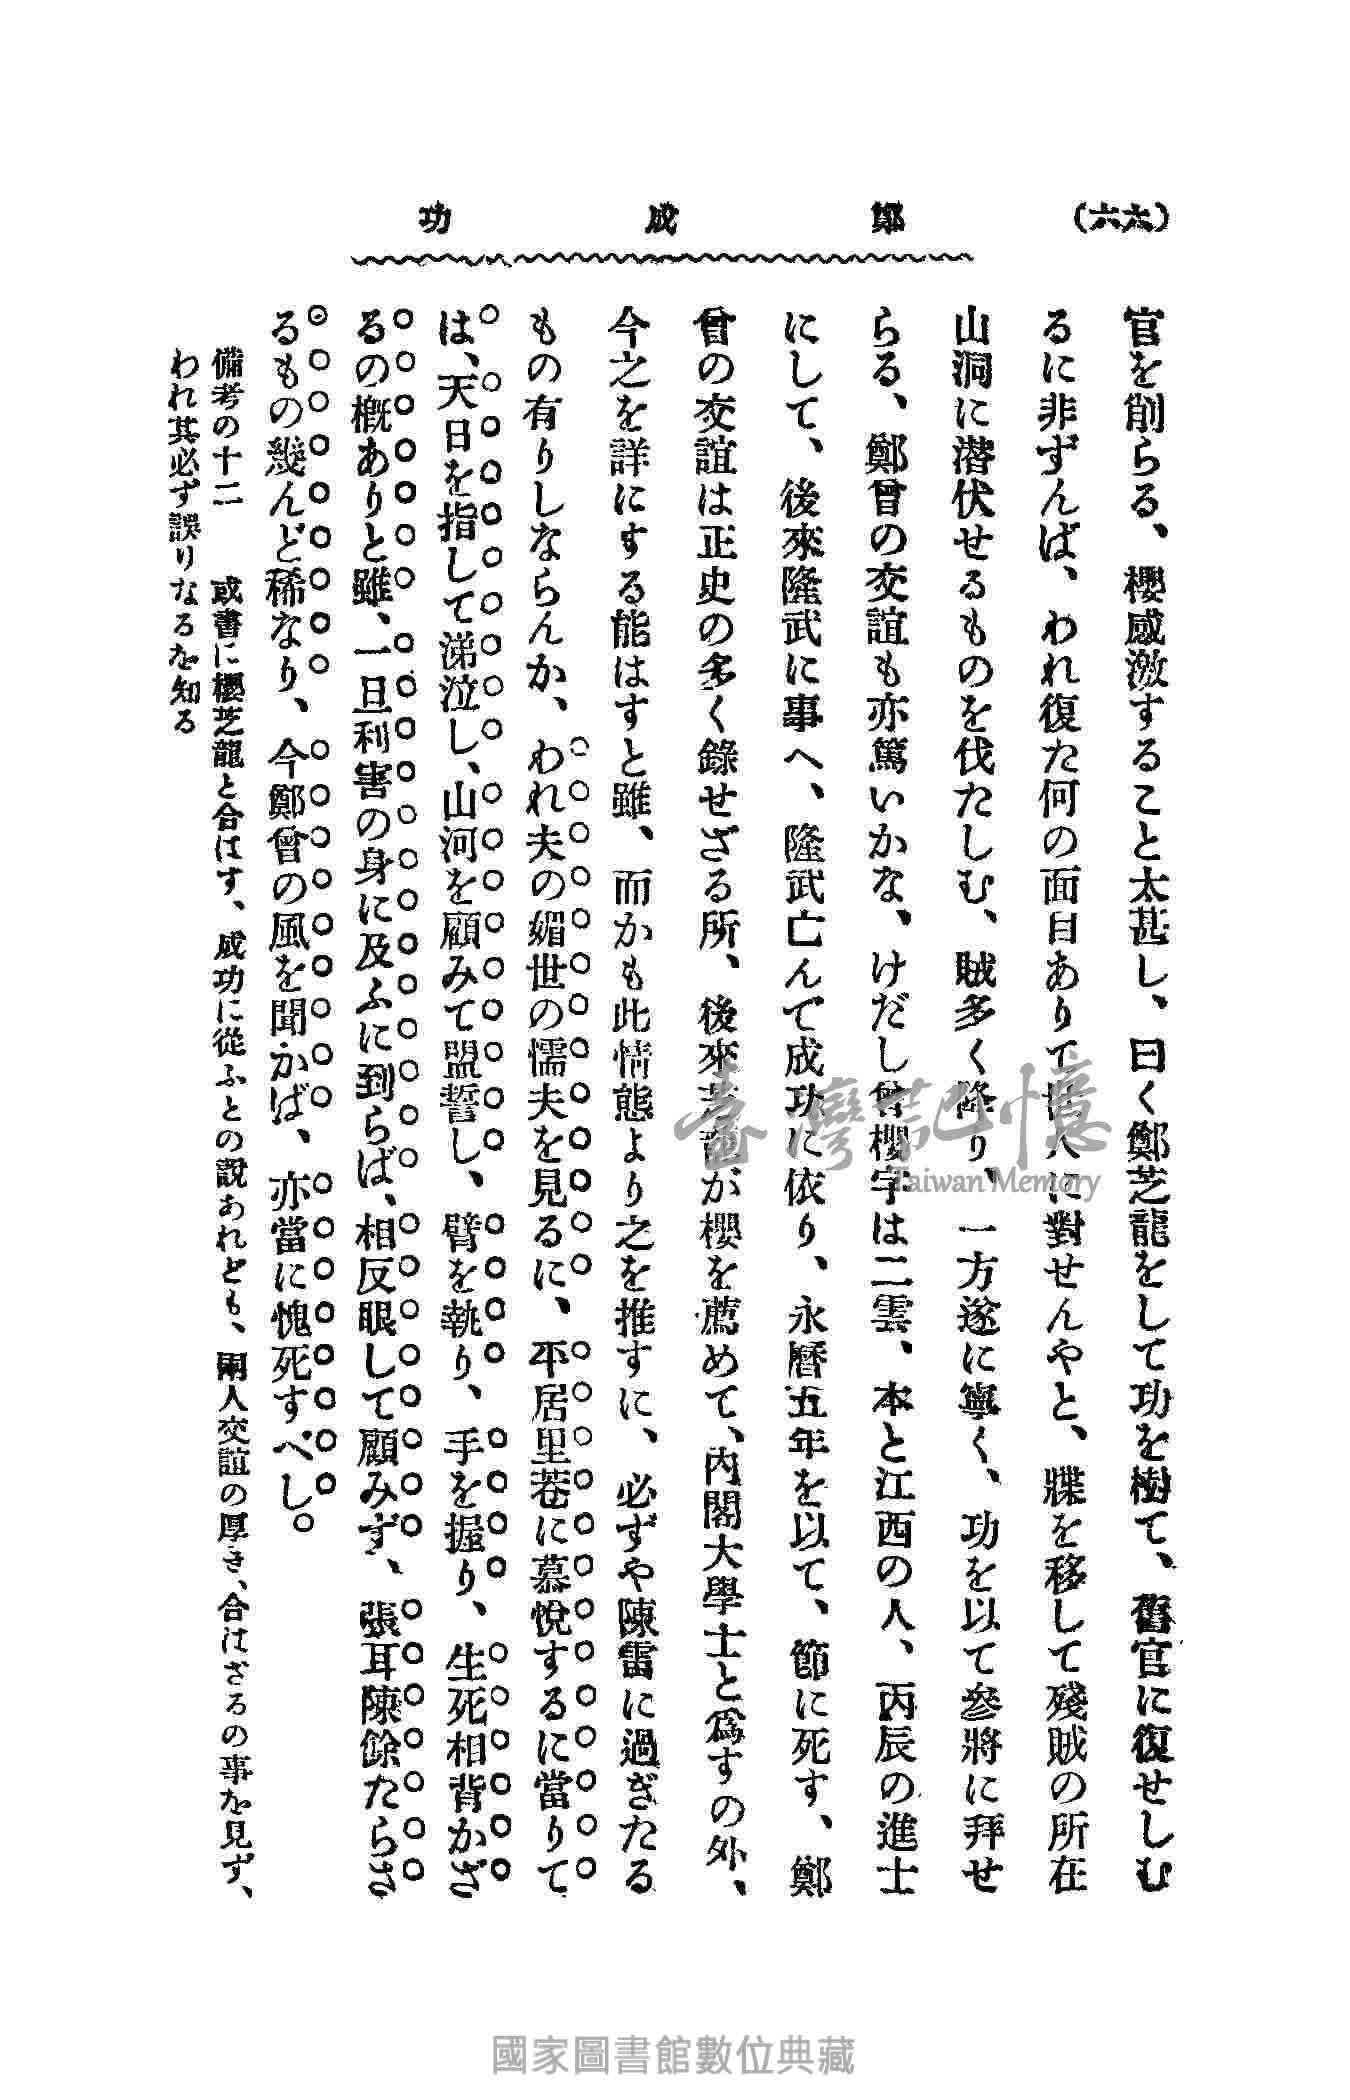 (六六)
鄭成功
官を削らる、櫻感激すること太甚し、曰く鄭芝龍をして功を樹て、舊官に復せしむ
るに非ずんば、われ復た何の面目ありて世人に對せんやと、牒を移して殘賊の所在
山洞に潜伏せるものを伐たしむ、賊多く降り、一方遂に寧く、功を以て參將に拜せ
らる、鄭曾の交誼も亦篤いかな、けだし曾櫻字は二雲、本と江西の人、丙辰の進士
にして、後來隆武に事へ、隆武亡んで成功に依り、永曆五年を以て、節に死す、鄭
曾の交誼は正史の多く錄せざる所、後來芝龍が櫻を薦めて、內閣大學士と爲すの外、
今之を詳にする能はずと雖、而かも此情態より之を推すに、必ずや陳雷に過ぎたる
もの有りしならんか、われ夫の媚世の懦夫を見るに、平居里巷に慕悅するに當りて
は、天日を指して涕泣し、山河を顧みて盟誓し、臂を執り、手を握り、生死相背かざ
るの槪ありと雖、一旦利害の身に及ふに到らば、相反眼して顧みず、張耳陳餘たらさ
るもの幾んど稀なり、今鄭曾の風を聞かば、亦當に愧死すべし。
備考の十二 或書に櫻芝龍と合はす、成功に從ふとの說あれども、兩人交誼の厚き、合はざるの事を見ず、
われ其必ず誤りなるを知る
臺灣記憶
Taiwan Memory
國家圖書館數位典藏